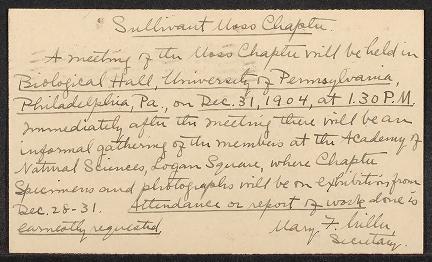 "Sullivant Moss Chapter.
A meeting of the Moss Chapter will be held in
Biological Hall, University of Pennsylvania,
Philadelphia Pa., on Dec. 31, 1904, at 1.30 P.M.
Immediately after the meeting there will be an
informal gathering of the members at the Academy of
Natural Sciences, Logan Square, where Chapter
Specimens and photographs will be on exhibition from
Dec. 28-31. Attendance or report of work done is
earnestly requested.
Mary F. Miller,
Secretary.